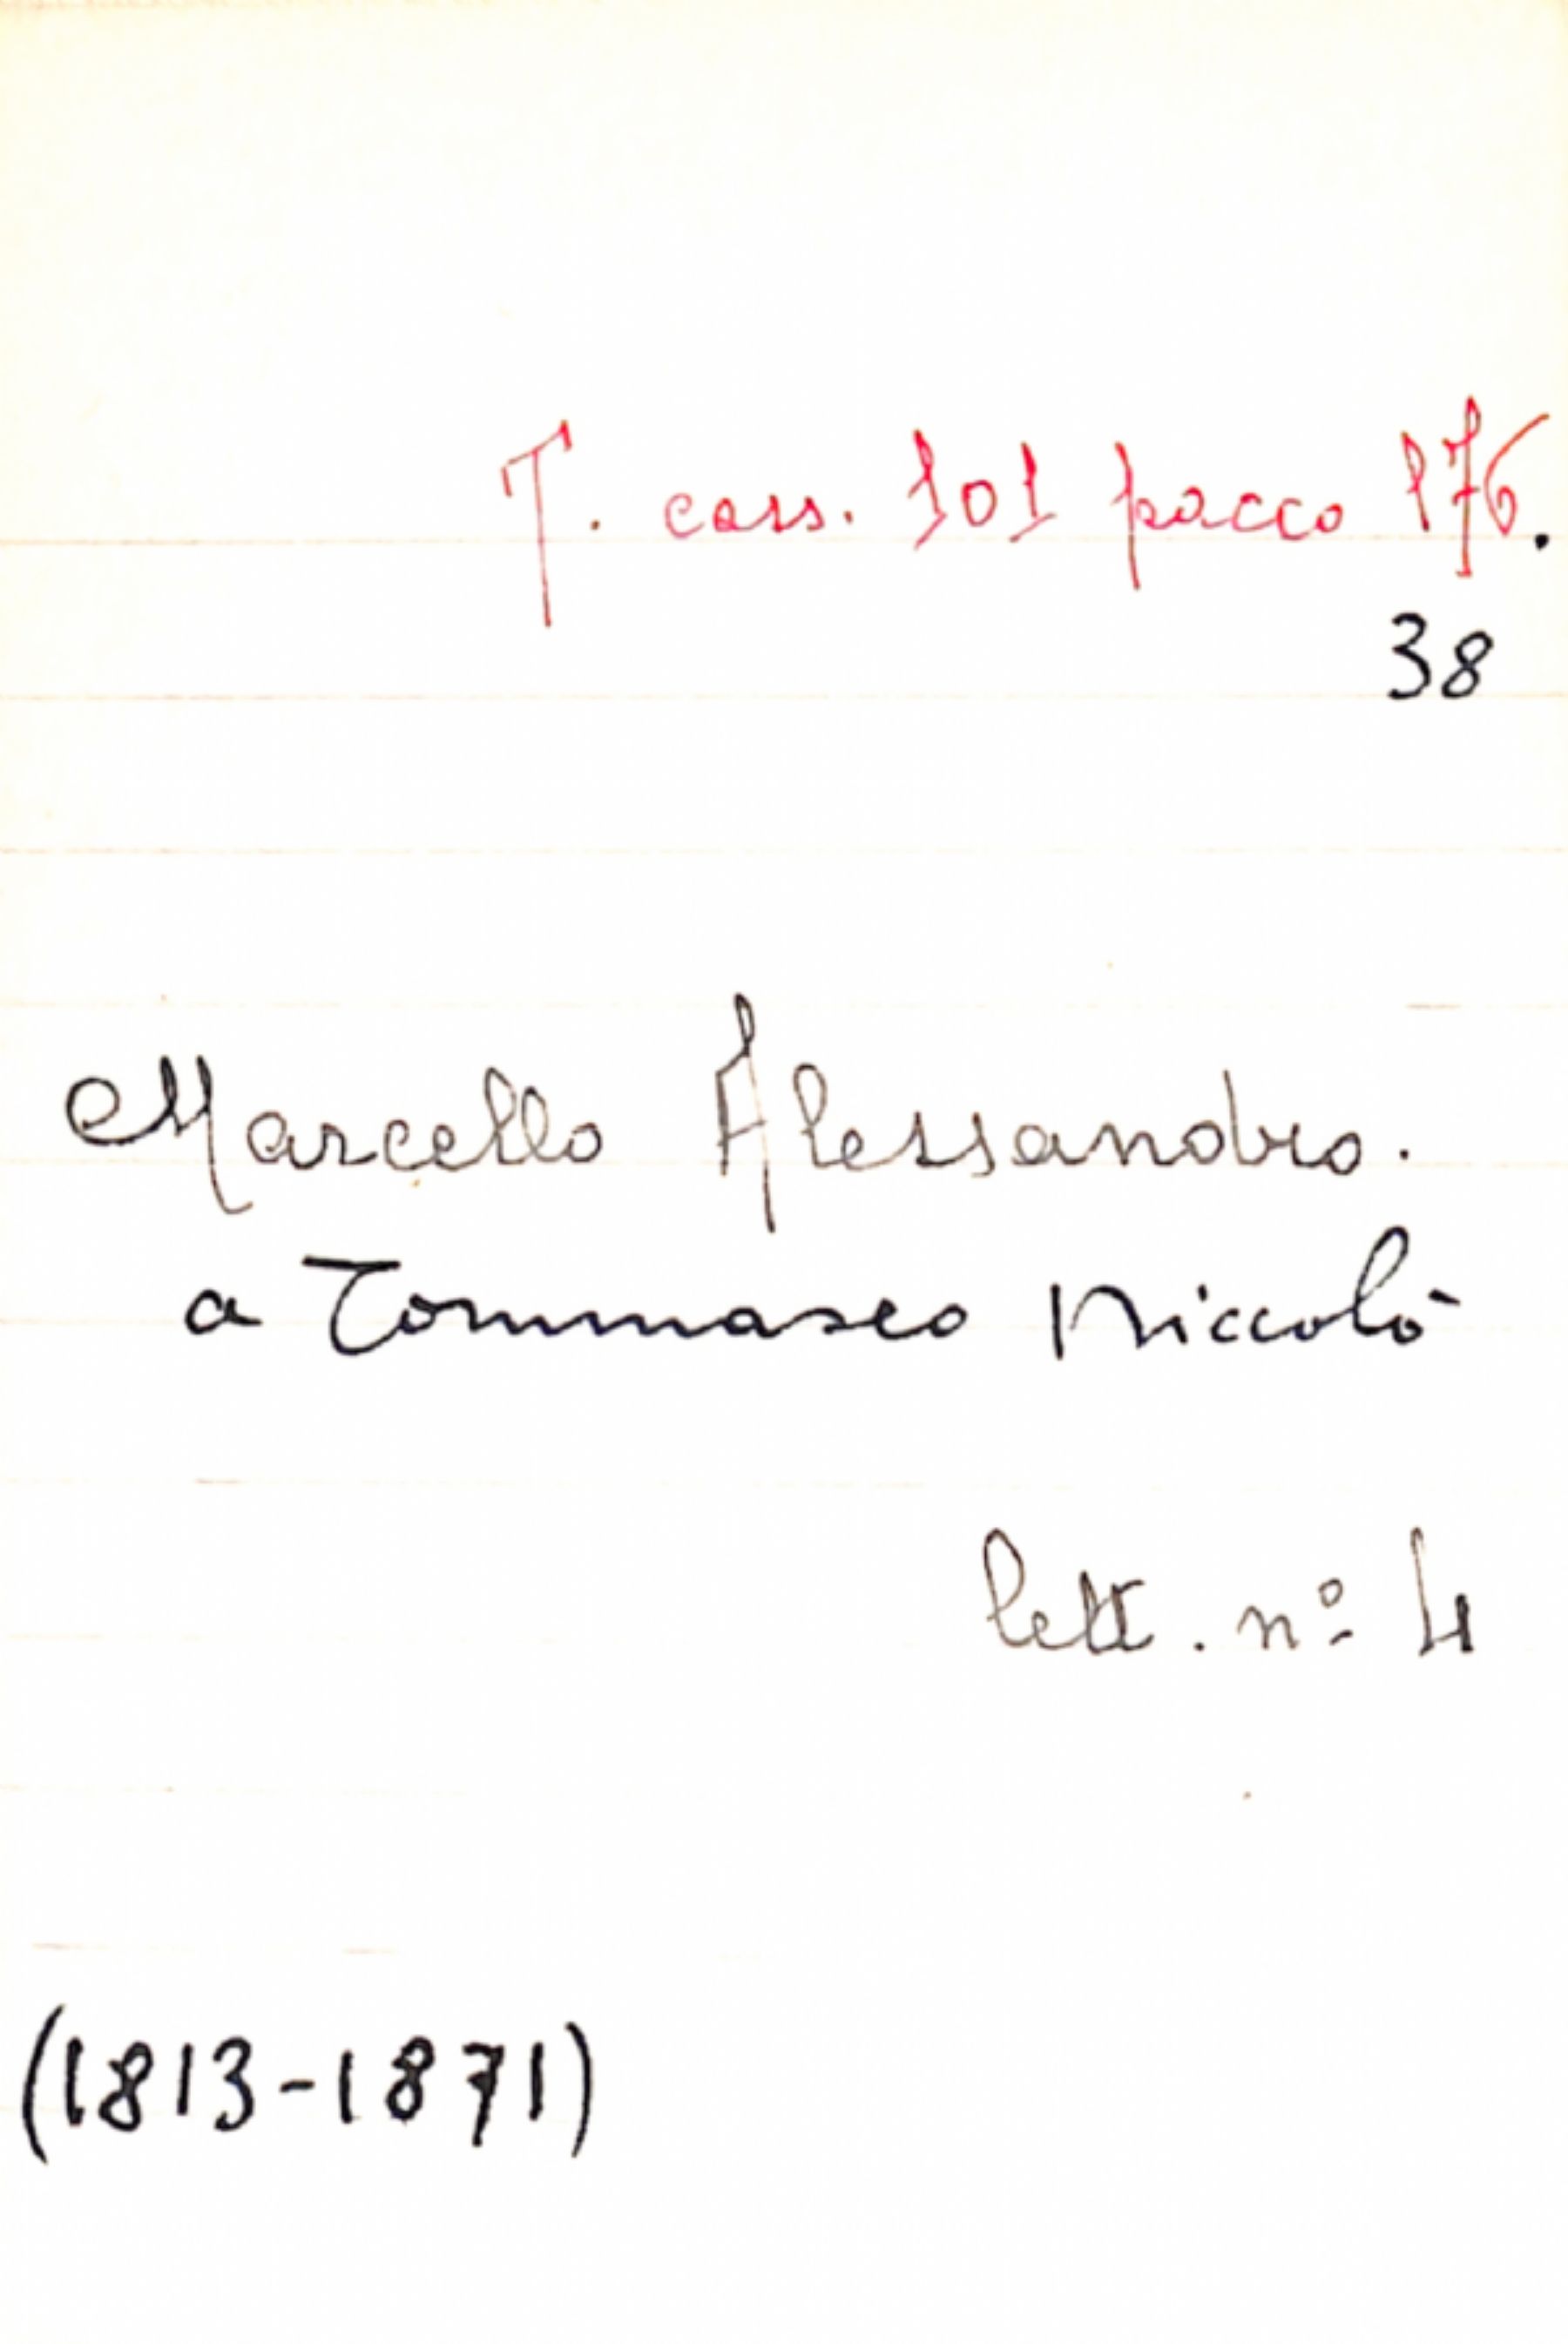 T. cass. 101 pacco 176.
38
Marcello Alessandro.
a Tommaseo Niccolò
lett. nº 4
(1813-1871)